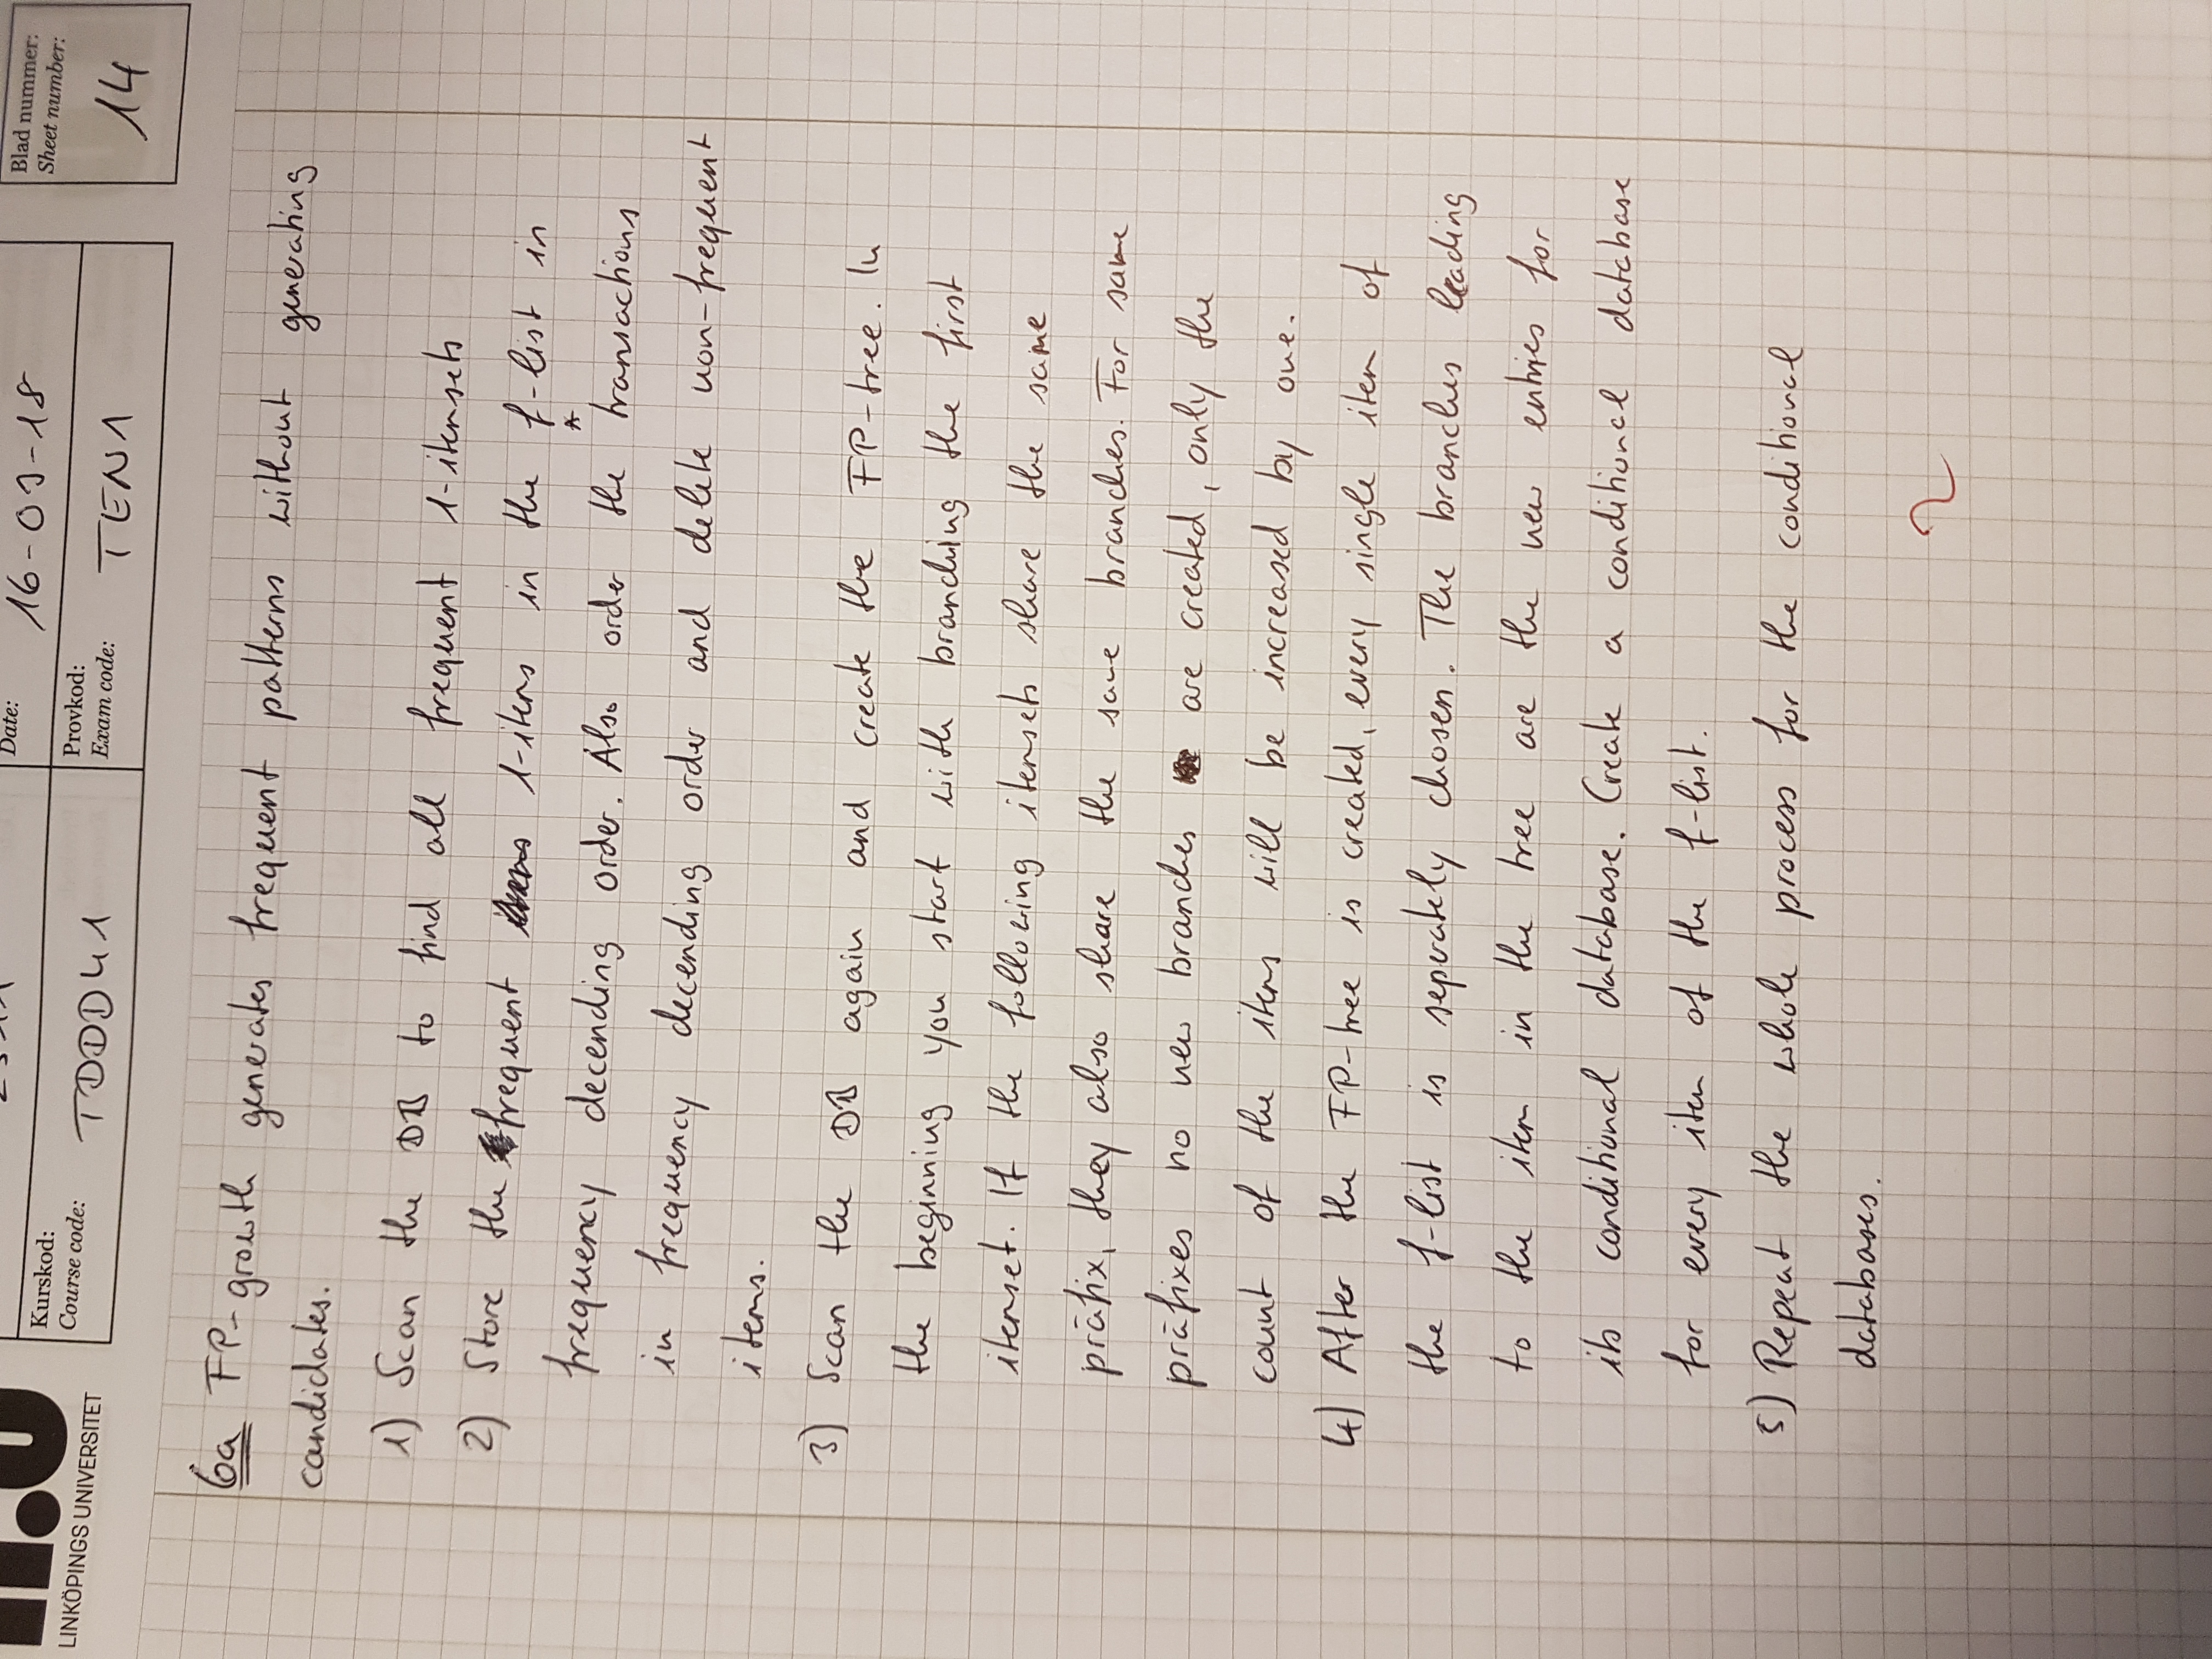 LINKÖPINGS UNIVERSITET
Kurskod:
Course code:
TDDD41
Date:
16-03-18
Provkod:
Exam code:
TEN1
Blad nummer:
Sheet number:
14
6a FP-growth generates frequent patterns without generating
candidates.
1) Scan the DB to find all frequent 1-itemsets
2) Store the frequent 1-items in the f-list in
frequency decending order. Also order the transactions
in frequency decending order and delete non-frequent
items.
3) Scan the DB again and create the FP-tree. In
the beginning you start with branching the first
itemset. If the following itemsets share the same
präfix, they also share the same branches. For same
präfixes no new branches are created, only the
count of the items will be increased by one.
4) After the FP-tree is created, every single item of
the f-list is seperately chosen. The branches leading
to the item in the tree are the new entries for
its conditional database. Create a conditional database
for every item of the f-list.
5) Repeat the whole process for the conditional
databases.
2